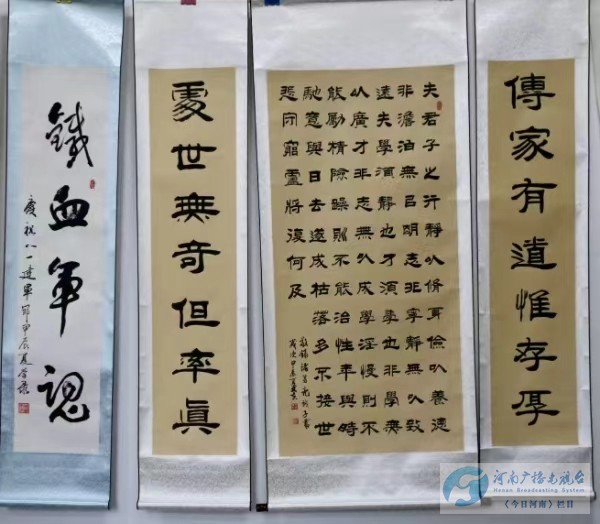 傳家有道惟存厚
夫君子之行靜以修身儉以養德
非澹泊無以明志非寧靜無以致
遠夫學須靜也才須學也非學無
以廣才非志無以成學淫慢則不
能勵精險躁則不能治性年與時
馳意與日去遂成枯落多不接世
悲守窮廬將復何及
敬錄諸葛亮誡子書
歲次甲辰夏
處世無奇但率真
鐵血軍魂
慶祝八一建軍節甲辰夏
河南广播电视台
Henan Broadcasting System
《今日河南》栏目